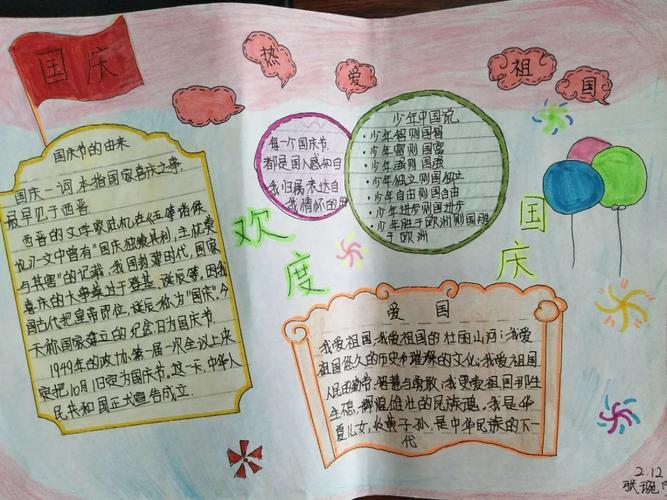 国庆
热爱祖国
国庆节的由来
国庆一词,本指国家喜庆之事,
最早见于西晋
西晋的文学家陆机在《五等诸侯
论》一文中曾有"国庆独飨其利,主忧莫
与其害"的记载,我国封建时代,国家
喜庆的大事莫过于登基、诞辰等,因我
国古代把皇帝即位、诞辰称为"国庆"。今
天称国家建立的纪念日为国庆节
1949年的政协第一届一次会议上决
定把10月1日定为国庆节,这一天,中华人
民共和国正式宣告成立.
每一个国庆节
都是国人感知自
我归属表达自
我情怀的日
少年中国说
·少年智则国智
·少年富则国富
·少年强则国强
·少年独立则国独立
·少年自由则国自由
·少年进步则国进步
·少年胜于欧洲则国胜
于欧洲
欢度
国庆
爱国
我爱祖国,我爱祖国的壮丽山河;我爱
祖国悠久的历史和璀璨的文化;我爱祖国
人民的勤劳、智慧与勇敢;我更爱祖国那生
生不息、辉煌雄壮的民族魂。我是华
夏儿女,炎黄子孙,是中华民族的下一
代
2.12
张